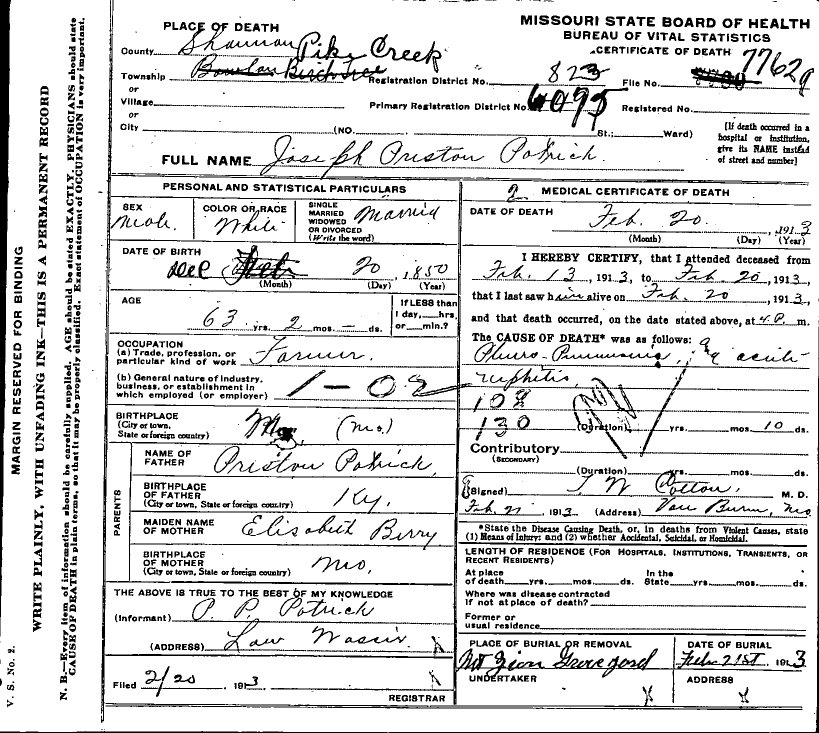 MARGIN RESERVED FOR BINDING
WRITE PLAINLY, WITH UNFADING INK—THIS IS A PERMANENT RECORD
N. B.—Every item of information should be carefully supplied. AGE should be stated EXACTLY. PHYSICIANS should state
CAUSE OF DEATH in plain terms, so that it may be properly classified. Exact statement of OCCUPATION is very important.
V. S. No. 2.
MISSOURI STATE BOARD OF HEALTH
BUREAU OF VITAL STATISTICS
CERTIFICATE OF DEATH
PLACE OF DEATH
County Shannon Pike Creek
Township Birch Tree
or
Village
or
City (NO. St.; Ward)
Registration District No. 823 File No. 7762
Primary Registration District No. 6095 Registered No.
[If death occurred in a
hospital or institution,
give its NAME instead
of street and number]
FULL NAME Joseph Preston Patrick.
PERSONAL AND STATISTICAL PARTICULARS
SEX Male. COLOR OR RACE White SINGLE
MARRIED
WIDOWED
OR DIVORCED
(Write the word) Married
DATE OF BIRTH Dec 20, 1850
(Month) (Day) (Year)
AGE 63 yrs. 2 mos. — ds.
If LESS than
1 day, hrs.
or min.?
OCCUPATION
(a) Trade, profession, or
particular kind of work Farmer.
(b) General nature of industry,
business, or establishment in
which employed (or employer) 1-02
BIRTHPLACE
(City or town,
State or foreign country) (Mo.)
PARENTS
NAME OF
FATHER Preston Patrick,
BIRTHPLACE
OF FATHER
(City or town, State or foreign country) Ky.
MAIDEN NAME
OF MOTHER Elisabeth Berry
BIRTHPLACE
OF MOTHER
(City or town, State or foreign country) Mo.
THE ABOVE IS TRUE TO THE BEST OF MY KNOWLEDGE
(Informant) P. P. Patrick
(ADDRESS) Low Wassie X
Filed 2/20, 1913 X
REGISTRAR
2 MEDICAL CERTIFICATE OF DEATH
DATE OF DEATH Feb. 20., 1913
(Month) (Day) (Year)
I HEREBY CERTIFY, that I attended deceased from
Feb. 13, 1913, to Feb. 20, 1913,
that I last saw him alive on Feb. 20, 1913,
and that death occurred, on the date stated above, at 4 P. m.
The CAUSE OF DEATH* was as follows:
Pleuro-Pneumonia, acute
nephitis,
108
130
(Duration) yrs. mos. 10 ds.
Contributory
(SECONDARY)
(Duration) yrs. mos. ds.
(Signed) T W Cotton, M. D.
Feb. 21, 1913 (Address) Van Buren, Mo
*State the Disease Causing Death, or, in deaths from Violent Causes, state
(1) Means of Injury; and (2) whether Accidental, Suicidal, or Homicidal.
LENGTH OF RESIDENCE (FOR HOSPITALS, INSTITUTIONS, TRANSIENTS, OR
RECENT RESIDENTS)
At place
of death yrs. mos. ds. In the
State yrs. mos. ds.
Where was disease contracted
if not at place of death?
Former or
usual residence
PLACE OF BURIAL OR REMOVAL
Mt Zion Graveyard
DATE OF BURIAL
Feb 21ST, 1913
UNDERTAKER X
ADDRESS X